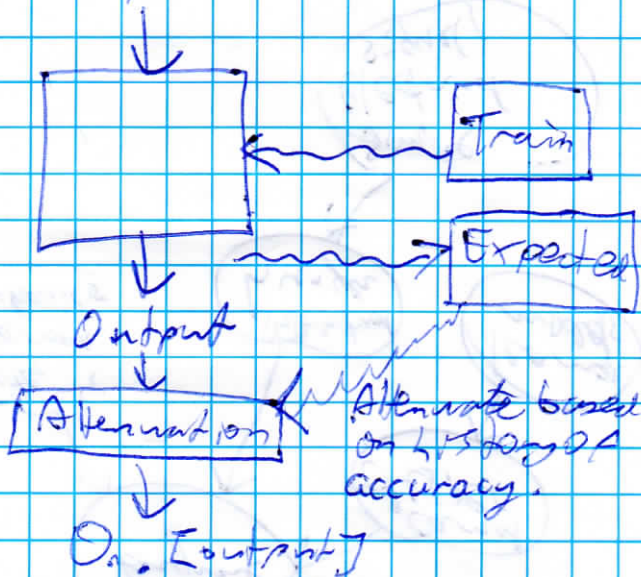 Train
Expected
Output
Attenuation
Attenuate based
on history of
accuracy.
[output]